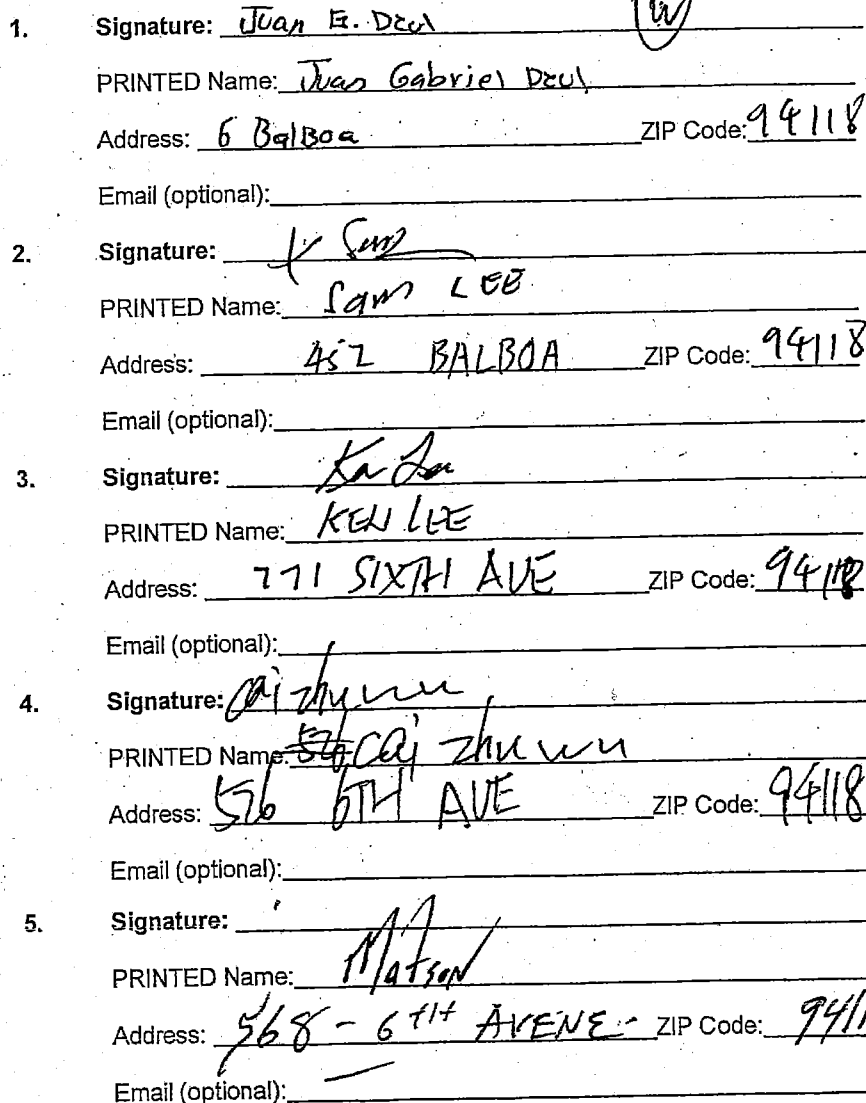 1. Signature: Juan G. Dzul
PRINTED Name: Juan Gabriel Dzul
Address: 6 BalBoa ZIP Code: 94118
Email (optional):
2. Signature:
PRINTED Name: Sam LEE
Address: 452 BALBOA ZIP Code: 94118
Email (optional):
3. Signature:
PRINTED Name: KEN LEE
Address: 771 SIXTH AVE ZIP Code: 94118
Email (optional):
4. Signature: Cai zhu wu
PRINTED Name: Cai zhu wu
Address: 576 6TH AVE ZIP Code: 94118
Email (optional):
5. Signature:
PRINTED Name: Matson
Address: 568 - 6TH AVENE - ZIP Code: 9411
Email (optional):